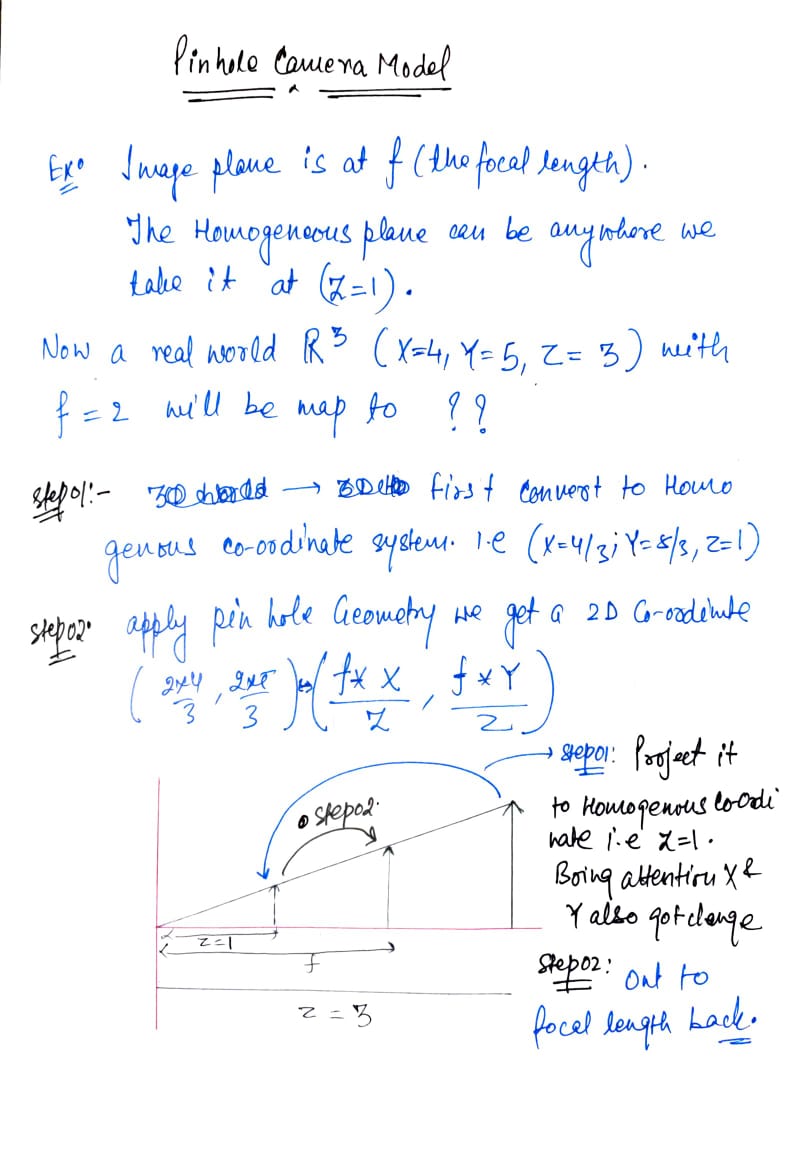 Pinhole Camera Model
Ex: Image plane is at f (the focal length).
The Homogeneous plane can be anywhere we
take it at (Z=1).
Now a real world R³ (X=4, Y=5, Z=3) with
f = 2 will be map to ??
Step01:- → first convert to Homo
genous co-oodinate system. i.e (X=4/3; Y=5/3, Z=1)
Step02: apply pin hole Geometry we get a 2D Co-oodinate
(2×4/3, 2×5/3) ↔ (f* X/Z, f*Y/Z)
→ Step01: Project it
to Homogenous Co-Odi
nate i.e Z=1.
Boing attention X &
Y also got change
Step02: Ont to
focal length back.
Step02:
Z=1
f
Z = 3